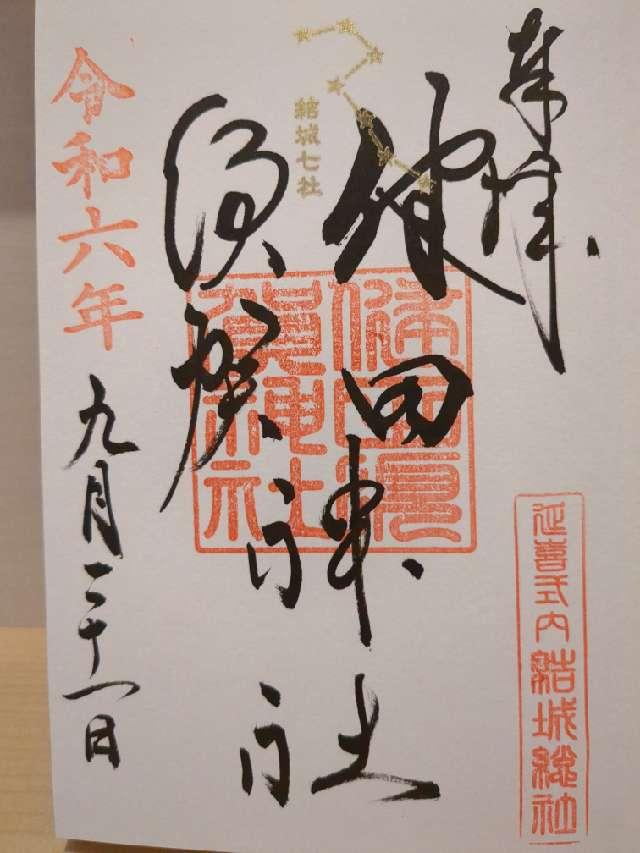 奉拝
結城七社
健田
須賀
神社
健田須
賀神社
延喜式内結城総社
令和六年
九月二十一日